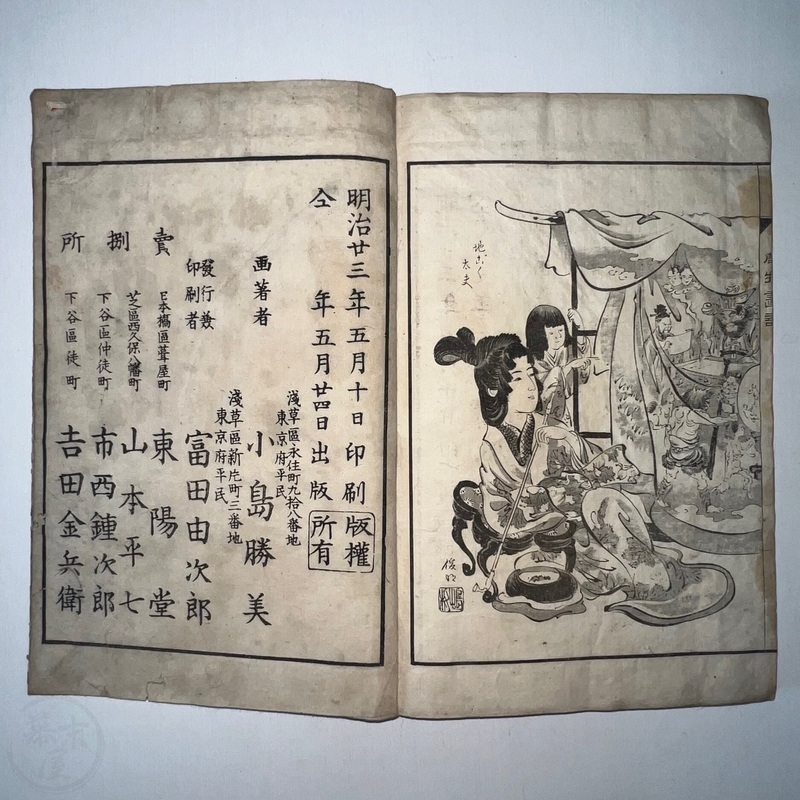 地ごく
太夫
俊明
明治廿三年五月十日印刷
仝　年五月廿四日出版
版權
所有
画著者
淺草區永住町九拾八番地
東京府平民
小島勝美
發行兼
印刷者
淺草區新片町三番地
東京府平民
富田由次郎
賣捌所
日本橋區葺屋町
東陽堂
芝區西久保八幡町
山本平七
下谷區仲徒町
市西鍾次郎
下谷區徒町
吉田金兵衛